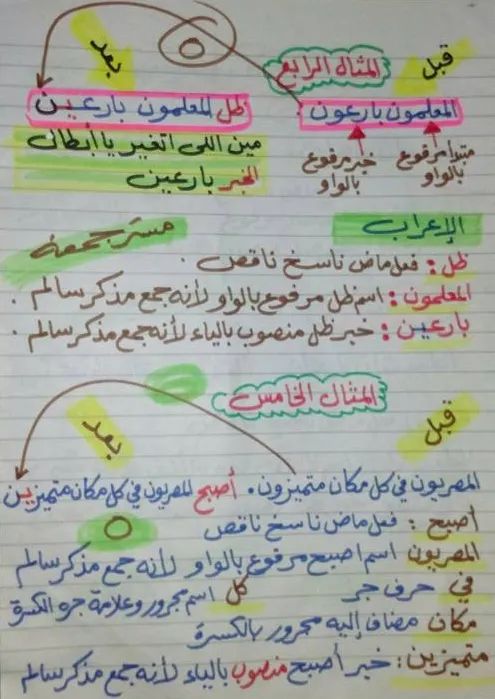 قبل
بعد
المثال الرابع
المعلمون بارعون.
ظل المعلمون بارعين
مبتدأ مرفوع بالواو
خبر مرفوع بالواو
مين اللى اتغير يا أبطال
الخبر بارعين
الإعراب
مستر جمعة
ظل: فعل ماض ناسخ ناقص.
المعلمون: اسم ظل مرفوع بالواو لأنه جمع مذكر سالم.
بارعين: خبر ظل منصوب بالياء لأنه جمع مذكر سالم.
المثال الخامس
قبل
بعد
المصريون في كل مكان متميزون. أصبح المصريون في كل مكان متميزين
أصبح: فعل ماض ناسخ ناقص
المصريون اسم اصبح مرفوع بالواو لأنه جمع مذكر سالم
في حرف جر كل اسم مجرور وعلامة جره الكسرة
مكان مضاف إليه مجرور بالكسرة
متميزين: خبر أصبح منصوب بالياء لأنه جمع مذكر سالم